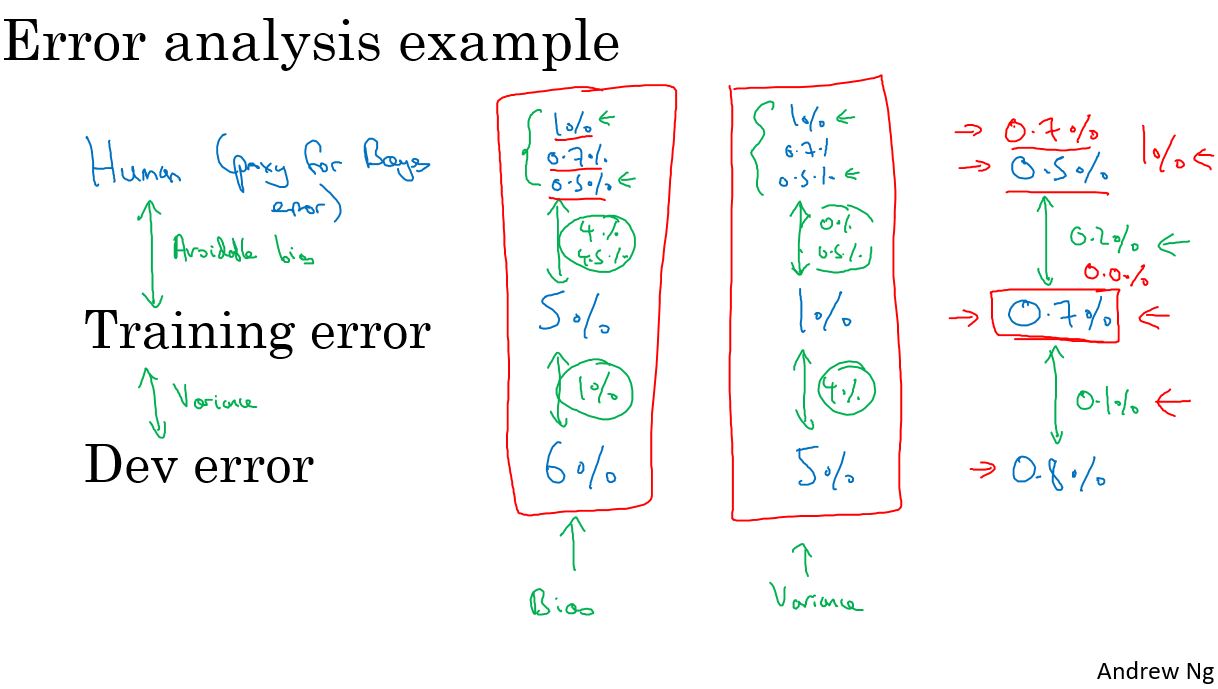 Error analysis example
Human (proxy for Bayes
error)
Avoidable bias
Training error
Variance
Dev error
1%
0.7%
0.5%
4%
4.5%
5%
1%
6%
Bias
1%
0.7%
0.5%
0%
0.5%
1%
4%
5%
Variance
0.7%
0.5%
1%
0.2%
0.0%
0.7%
0.1%
0.8%
Andrew Ng